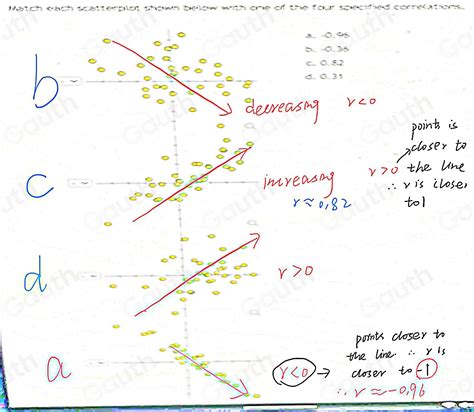 Match each scatterplot shown below with one of the four specified correlations.
a. -0.96
b. -0.36
c. 0.82
d. 0.31
b
decreasing r<0
c
increasing
r≈0,82
r>0
points is
closer to
the line
∴ r is closer
to 1
d
r>0
a
r<0 →
points closer to
the line ∴ r is
closer to -1
∴ r ≈ -0,96